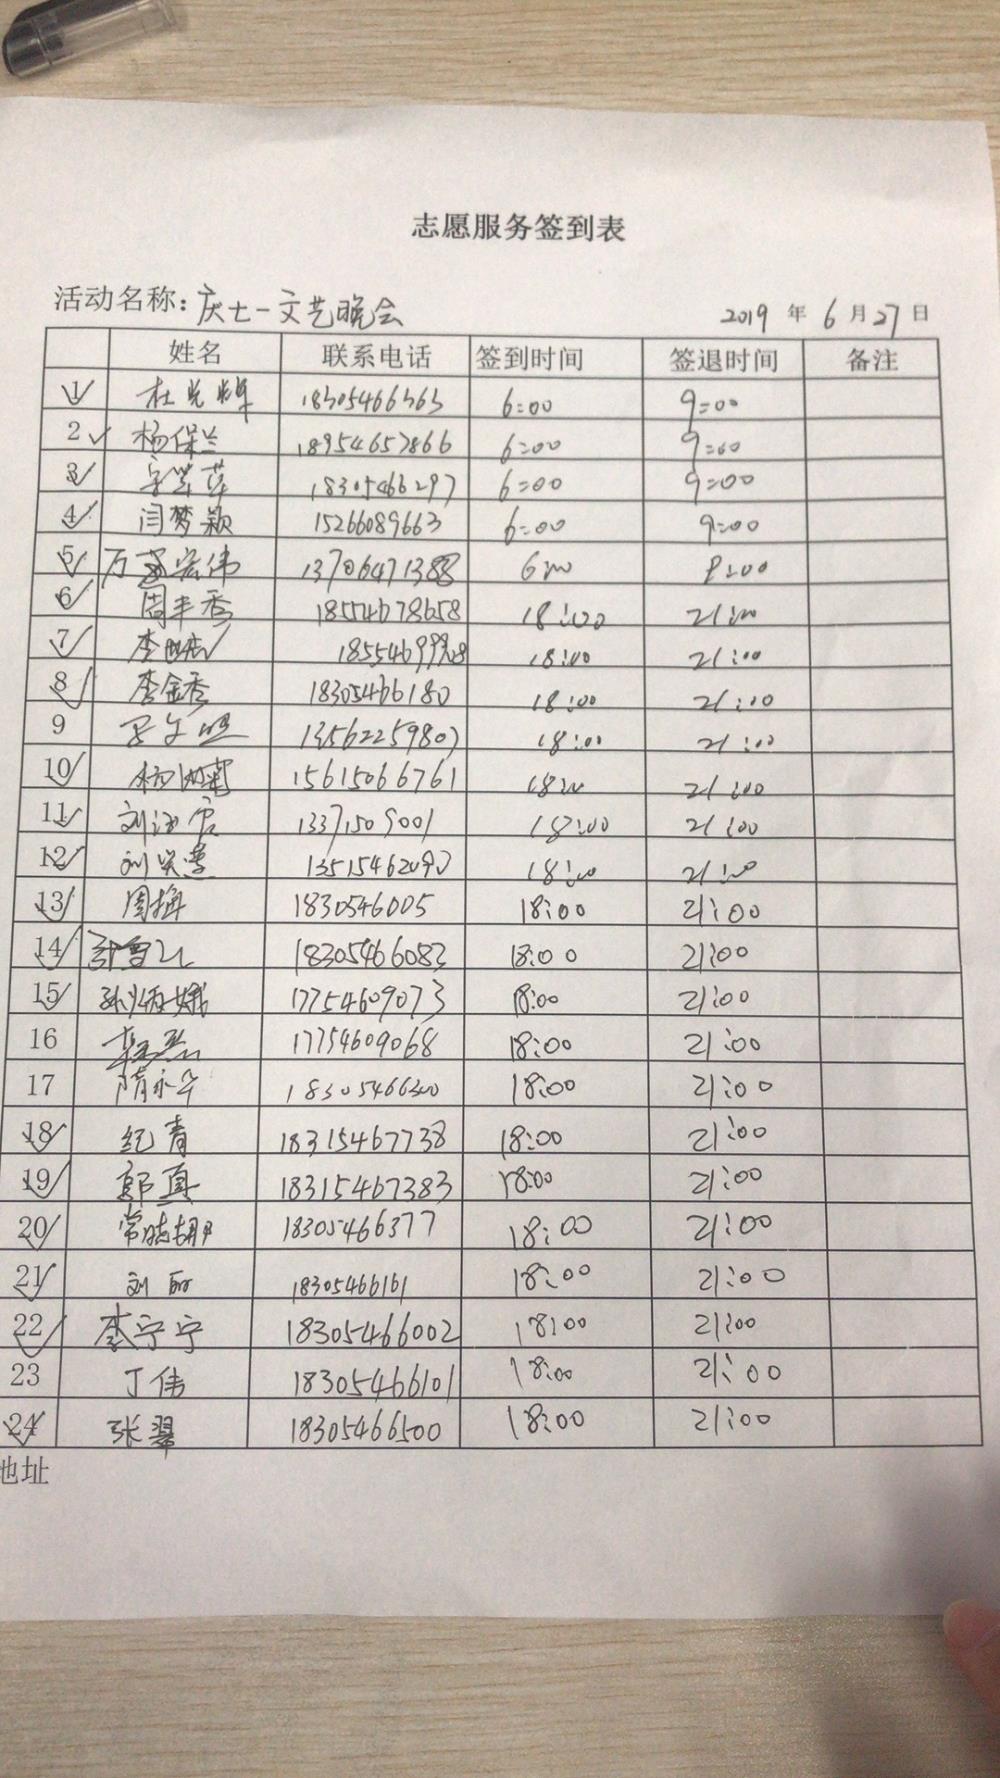 志愿服务签到表
活动名称: 庆七一文艺晚会 2019 年 6 月 27 日
姓名 联系电话 签到时间 签退时间 备注
1 杜光辉 18305466363 6:00 9:00
2 杨保兰 18954657866 6:00 9:00
3 18305466297 6:00 9:00
4 闫梦颖 15266089663 6:00 9:00
5 万宏伟 13706471388 6:00 9:00
6 周丰香 18554678658 18:00 21:00
7 18:00 21:00
8 李金香 18305466180 18:00 21:00
9 13562259807 18:00 21:00
10 15615066761 18:00 21:00
11 13371509001 18:00 21:00
12 18:00 21:00
13 周梅 1830546005 18:00 21:00
14 18305466083 18:00 21:00
15 17754609073 18:00 21:00
16 17754609068 18:00 21:00
17 隋永华 18305466300 18:00 21:00
18 纪青 18315467738 18:00 21:00
19 郭真 18315467383 18:00 21:00
20 18305466377 18:00 21:00
21 刘丽 18305466161 18:00 21:00
22 李宁宁 18305466002 18:00 21:00
23 丁伟 18305466101 18:00 21:00
24 张翠 18305466500 18:00 21:00
地址